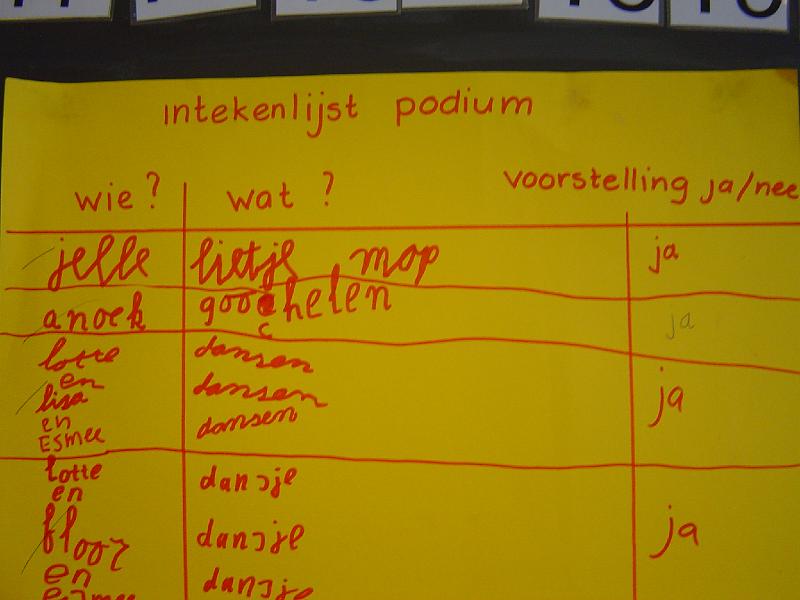 intekenlijst podium
wie? wat? voorstelling ja/nee
jelle lietje mop ja
anoek goochelen ja
lotte dansen
en
lisa dansen ja
en
Esmee dansen
lotte dansje
en
floor dansje ja
en
Esmee dansje